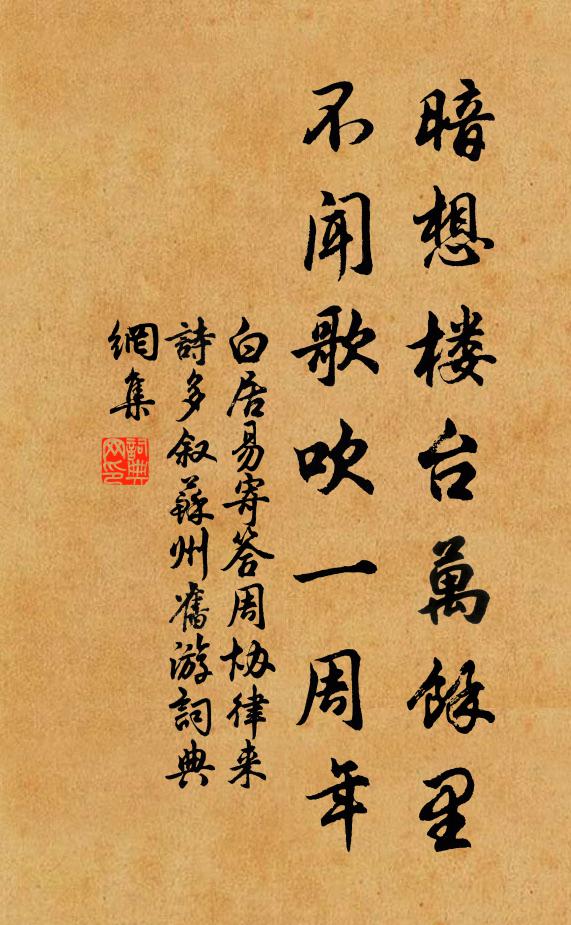 暗想楼台萬餘里
不闻歌吹一周年
白居易寄答周协律来
詩多叙蘇州舊游词典
網集
詞典网印